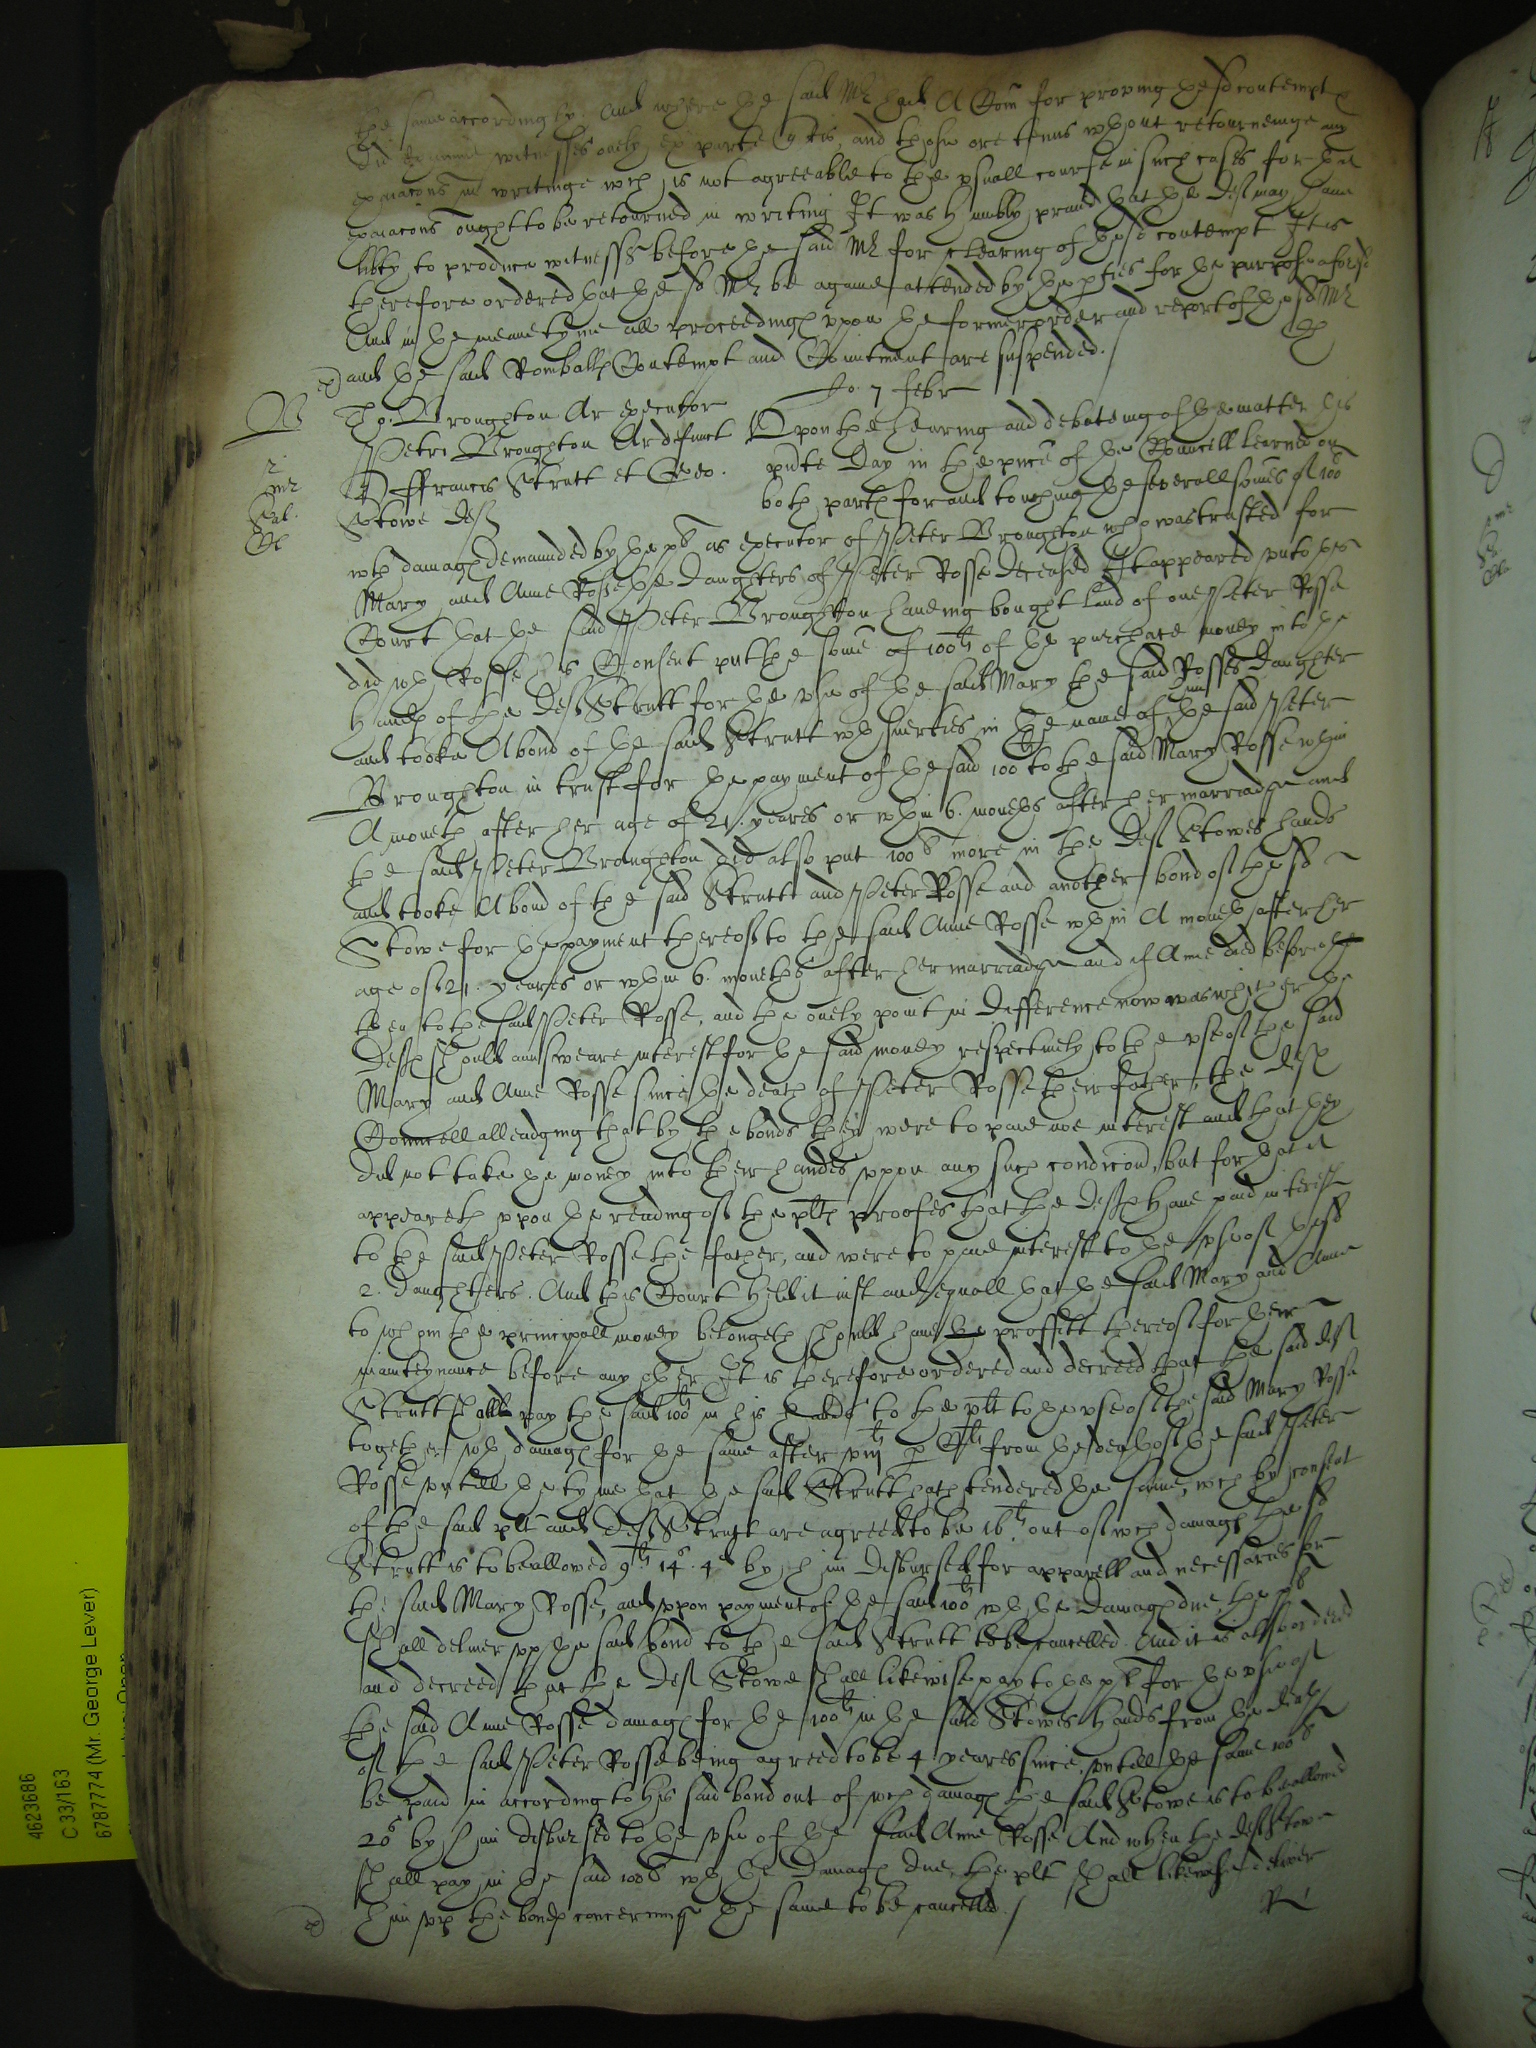 the same accordingly. And where the said Mr had A Com for proving the sd contempt
did examine witnesses onely ex parte and those ore tenus wthout retourneinge any
exiacons in writinge wch is not agreeable to the usuall course in such cases for that
exiacons ought to be retourned in writing It was humbly praied that the deft may have
libty to produce witnesses before the said Mr for clearing of the sd contempt It is
therefore ordered that the sd Mr be againe attended by the pties for the purpose aforesd
And in the meane tyme all proceedings upon the former order and report of the sd Mr
and the said Romballs Contempt and Comitment are suspended.
Jo. 7 febr
Tho. Broughton Ar executor
Petri Broughton Ar defunct
Ffrancis Strutt et Geo.
Stowe Deftes
2
Mr
Sal.
Upon the hearing and debateing of the matter this
pnte Day in the pnce of the Councell learned on
both parts for and touching the severall somes of 100l
wth damages demaunded by the plt as executor of Peter Broughton who was trusted for
Mary and Anne Rosse the Daughters of Peter Rosse deceased It appeared unto this
Court that the said Peter Broughton haveing bought land of one Peter Rosse
did wth Rosse his Consent put the some of 100li of the purchase money into the
hands of the deft Strutt for the use of the said Mary the said Rosses Daughter
and tooke A bond of the said Strutt wth suerties in the name of the said Peter
Broughton in trust for the payment of the said 100li to the said Mary Rosse wthin
A moneth after her age of 21. yeares or wthin 6. moneths after her marriadge and
the said Peter Broughton did also put 100l more in the Deft Stowes hands
and tooke A bond of the said Strutt and Peter Rosse and another bond of the sd
Stowe for the payment thereof to the said Anne Rosse wthin A moneth after her
age of 21. yeares or wthin 6. moneths after her marriadge and if Anne died before
then to the said Peter Rosse, and the onely point in difference now was whither the
Defts should aunsweare interest for the said money respectively to the use of the said
Mary and Anne Rosse since the death of Peter Rosse their father, the defts
Councell alleadging that by the bonds they were to paie noe interest and that they
did not take the money into their handes uppon any such condicion, but for that it
appeareth upon the reading of the plts proofes that the Defts have paid interest
to the said Peter Rosse the father, and were to paie interest to the use of the sd
2. Daughters. And this Court held it iust and equall that the said Mary and Anne
to whom the principall money belongeth should have the proffitt thereof for their
mainteynance before any other It is therefore ordered and decreed that the said deft
Strutt shall pay the said 100li in his hands to the plt to the use of the said Mary Rosse
together wth damages for the same after viijli p Cli from the death of the said Peter
Rosse untill the tyme that the said Strutt hath tendered the same, wch by consent
of the said plt and Deft Strutt are agreed to be 16li out of wch damages the sd
Strutt is to be allowed 9li 14s. 4d by him disbursed for apparell and necessaries for
the said Mary Rosse, and uppon payment of the said 100li wth the Damages due, the plt
shall deliver upp the said bond to the said Strutt to be cancelled. And it is also ordered
and decreed that the deft Stowe shall likewise pay to the plt for the use of
the said Anne Rosse damages for the 100li in the said Stowes hands from the death
of the said Peter Rosse being agreed to be 4 yeares since, untill the same 100l
be paid in according to his said bond out of wch damages the said Stowe is to be allowed
20s by him disbursed to the use of the said Anne Rosse And when the deft Stowe
shall pay in the said 100l wth the Damages due, the plt shall likewise deliver
him upp the bonds concerninge the same to be cancelled.
4623686
C 33/163
6787774 (Mr. George Lever)